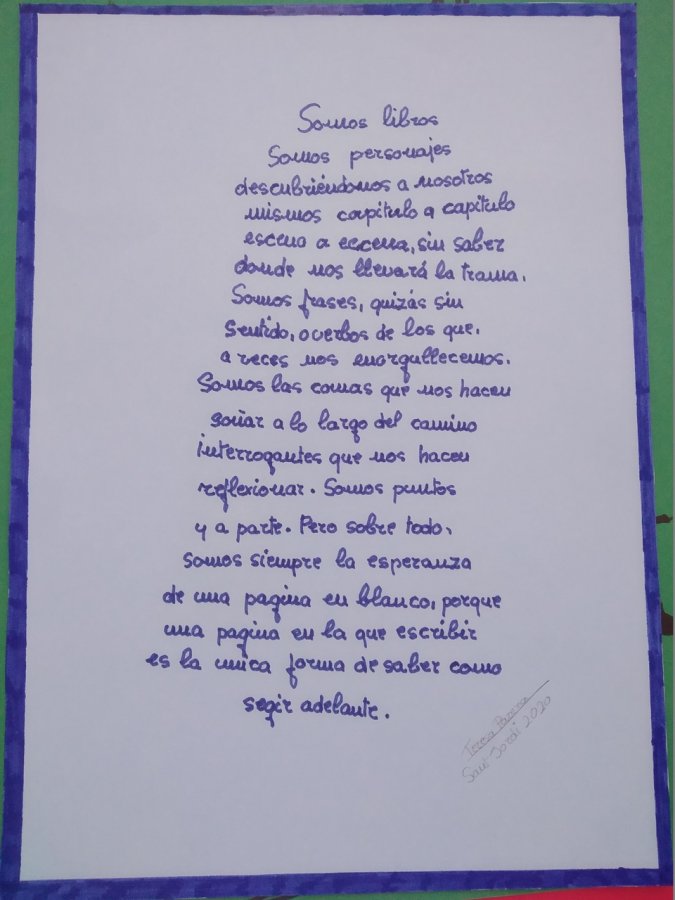 Somos libros
Somos personajes
descubriéndonos a nosotros
mismos capitulo a capitulo
escena a eccena, sin saber
donde nos llevará la trama.
Somos frases, quizás sin
Sentido, o verbos de los que,
a veces nos enorgullecemos.
Somos las comas que nos hacen
soñar a lo largo del camino
interrogantes que nos hacen
reflexionar. Somos puntos
y a parte. Pero sobre todo,
somos siempre la esperanza
de una pagina en blanco, porque
una pagina en la que escribir
es la unica forma de saber como
segir adelante.
Teresa
Sant Jordi 2020